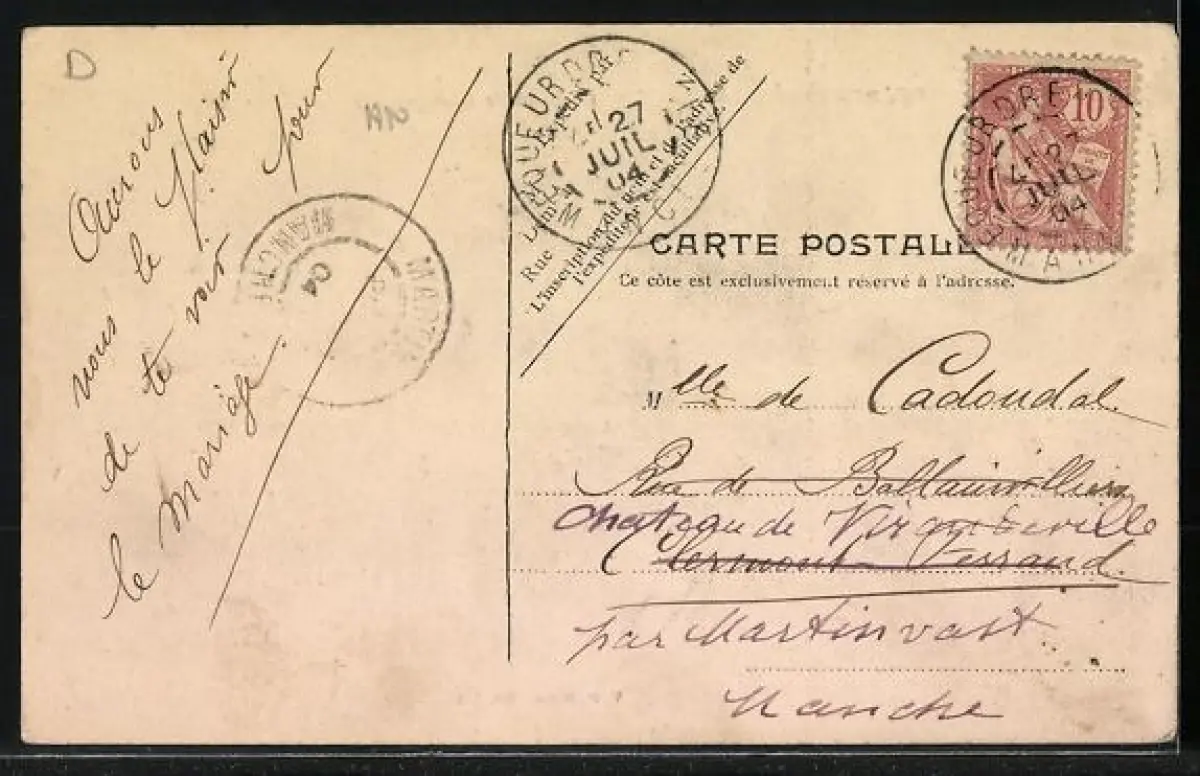 D
AN
Aurons
nous le plaisir
de te voir pour
le mariage.
MANCHE
04
QUEURDRE
27
JUIL
04
Expédié par
Rue
L'inscription du nom et de l'adresse de
l'expéditeur est facultative.
10
QUEURDRE
JUIL
04
MAN
CARTE POSTALE
Ce côté est exclusivement réservé à l'adresse.
Mlle de Cadoudal
Rue de Ballainvilliers
Chateau de
Clermont Ferrand.
par Martinvast
Manche